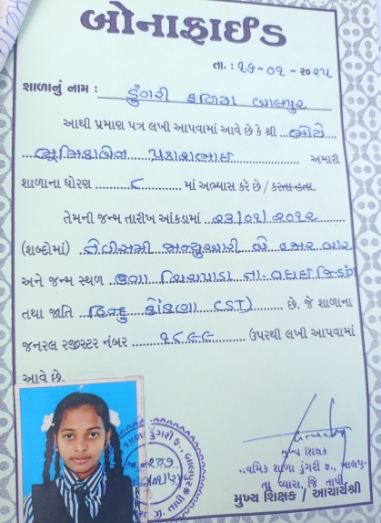 બોનાફાઈડ
તા. : ૧૬-૦૧ - ૨૦૨૫
શાળાનું નામ : ડુંગરી ફળિયા બાલપુર
આથી પ્રમાણ પત્ર લખી આપવામાં આવે છે કે શ્રી
ભૂમિકાબેન પ્રકાશભાઈ અમારી
શાળાના ધોરણ ૮ માં અભ્યાસ કરે છે / કરતા હતા.
તેમની જન્મ તારીખ આંકડામાં ૨૩/૦૧/૨૦૧૨
(શબ્દોમાં) તેવીસમી જાન્યુઆરી બે હજાર બાર
અને જન્મ સ્થળ
તથા જાતિ હિન્દુ કોંકણા (ST) છે. જે શાળાના
જનરલ રજીસ્ટર નંબર ૧૮૯૯ ઉપરથી લખી આપવામાં
આવે છે.
મુખ્ય શિક્ષક
શાળા ડુંગરી ફ., બાલપુર
તા વ્યારા, જિ તાપી
મુખ્ય શિક્ષક / આચાર્યશ્રી